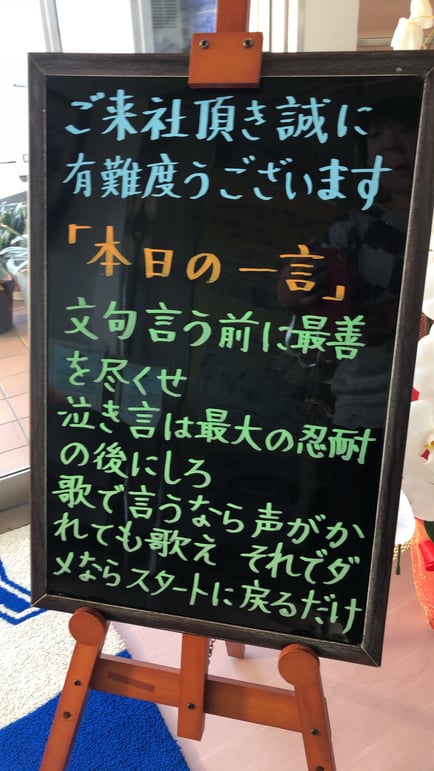 ご来社頂き誠に
有難度うございます
「本日の一言」
文句言う前に最善
を尽くせ
泣き言は最大の忍耐
の後にしろ
歌で言うなら声がか
れても歌え それでダ
メならスタートに戻るだけ